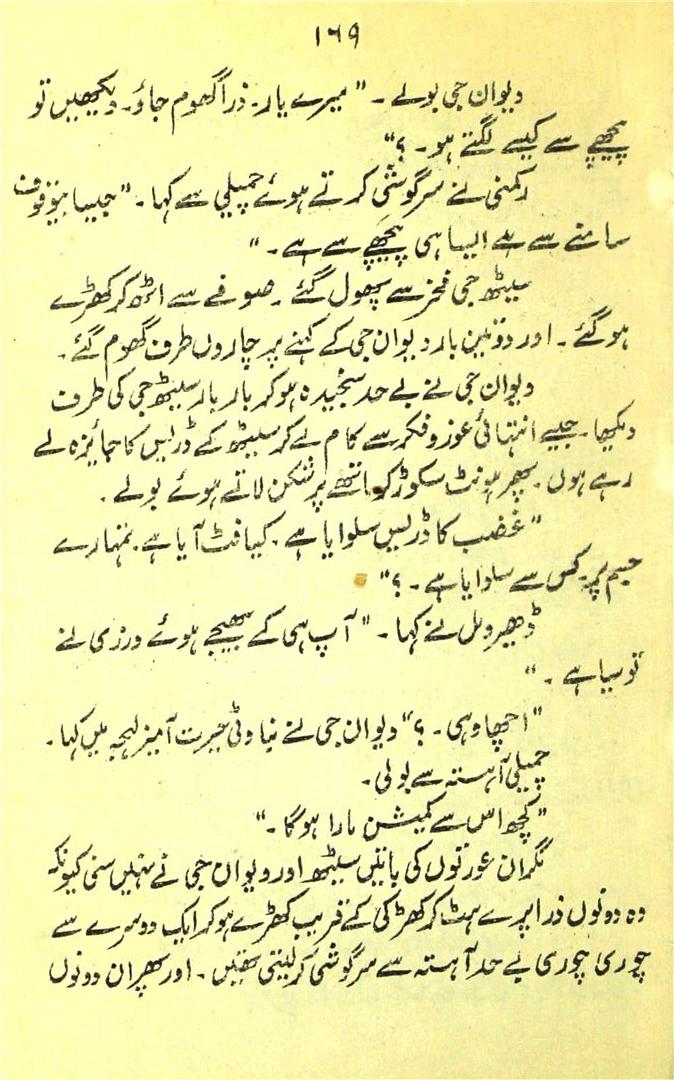 ۱۶۹
دیوان جی بولے ۔ "میرے یار۔ ذرا گھوم جاؤ۔ دیکھیں تو
پیچھے سے کیسے لگتے ہو۔ ؟"
رکمنی نے سرگوشی کرتے ہوئے چمپلی سے کہا۔ "جیسا بیوقوف
سامنے سے ہے ایسا ہی پیچھے سے ہے۔ "
سیٹھ جی فخر سے پھول گئے ۔ صوفے سے اٹھ کر کھڑے
ہو گئے ۔ اور دو تین بار دیوان جی کے کہنے پر چاروں طرف گھوم گئے۔
دیوان جی نے بے حد سنجیدہ ہو کر بار بار سیٹھ جی کی طرف
دیکھا۔ جیسے انتہائی غور و فکر سے کام لے کر سیٹھ کے ڈریس کا جائزہ لے
رہے ہوں۔ پھر ہونٹ سکوڑ کر ماتھے پر شکن لاتے ہوئے بولے ۔
"غضب کا ڈریس سلوایا ہے۔ کیا فٹ آیا ہے۔ تمہارے
جسم پر۔ کس سے سلوایا ہے۔ ؟"
ڈھیرومل نے کہا۔ "آپ ہی کے بھیجے ہوئے درزی نے
تو سیا ہے ۔ "
"اچھا وہی۔ ؟" دیوان جی نے بناوٹی حیرت آمیز لہجہ میں کہا۔
چمپلی آہستہ سے بولی۔
"کچھ اس سے کمیشن مارا ہو گا۔"
مگر ان عورتوں کی باتیں سیٹھ اور دیوان جی نے نہیں سنی کیونکہ
وہ دونوں ذرا پرے ہٹ کر کھڑکی کے قریب کھڑے ہو کر ایک دوسرے سے
چوری چوری بے حد آہستہ سے سرگوشی کر لیتی تھیں۔ اور پھر ان دونوں